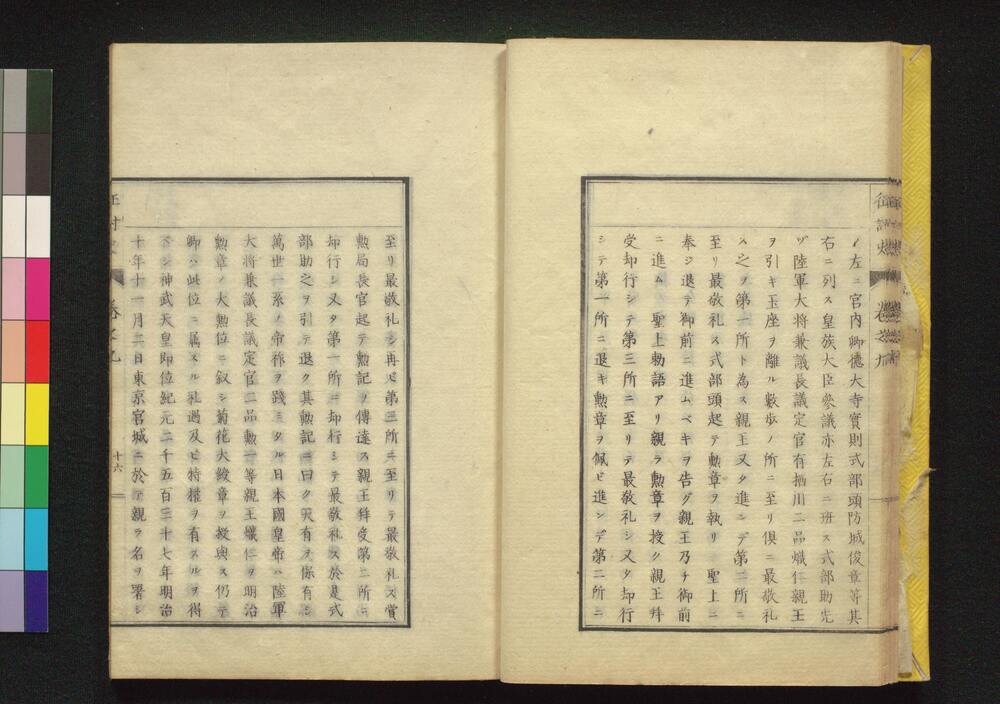 ノ左ニ宮内卿德大寺實則式部頭防城俊章等其
右ニ列ス皇族大臣參議亦左右ニ班ス式部助先
ヅ陸軍大将兼議長議定官有栖川二品熾仁親王
ヲ引キ玉座ヲ離ル數歩ノ所ニ至リ倶ニ最敬礼
ス之ヲ第一所ト為ス親王又タ進ンデ第二所ニ
至リ最敬礼ス式部頭起テ勲章ヲ執リ 聖上ニ
奉ジ退テ御前ニ進ムベキヲ告グ親王乃チ御前
ニ進ム 聖上勅語アリ親ラ勲章ヲ授ク親王拜
受却行シテ第三所ニ至リテ最敬礼シ又タ却行
シテ第一所ニ退キ勲章ヲ佩ヒ進ンデ第二所ニ
至リ最敬礼シ再ビ第三所ニ至リテ最敬礼ス賞
勲局長官起テ勲記ヲ傳達ス親王拜受第二所ニ
却行シ又タ第一所ニ却行シテ最敬礼ス於是式
部助之ヲ引テ退ク其勲記ニ曰ク天有ヲ保有シ
萬世一系ノ帝祚ヲ踐ミタル日本國皇帝ハ陸軍
大将兼議長議定官二品勲一等親王熾仁ヲ明治
勲章ノ大勲位ニ叙シ菊花大綬章ヲ授與ス仍テ
卿ハ此位ニ屬スル礼過及ビ特權ヲ有スルヲ得
ン神武天皇即位紀元二千五百三十七年明治
十年十一月二日東京宮城ニ於テ親ラ名ヲ署シ
征討史 卷之九
十六